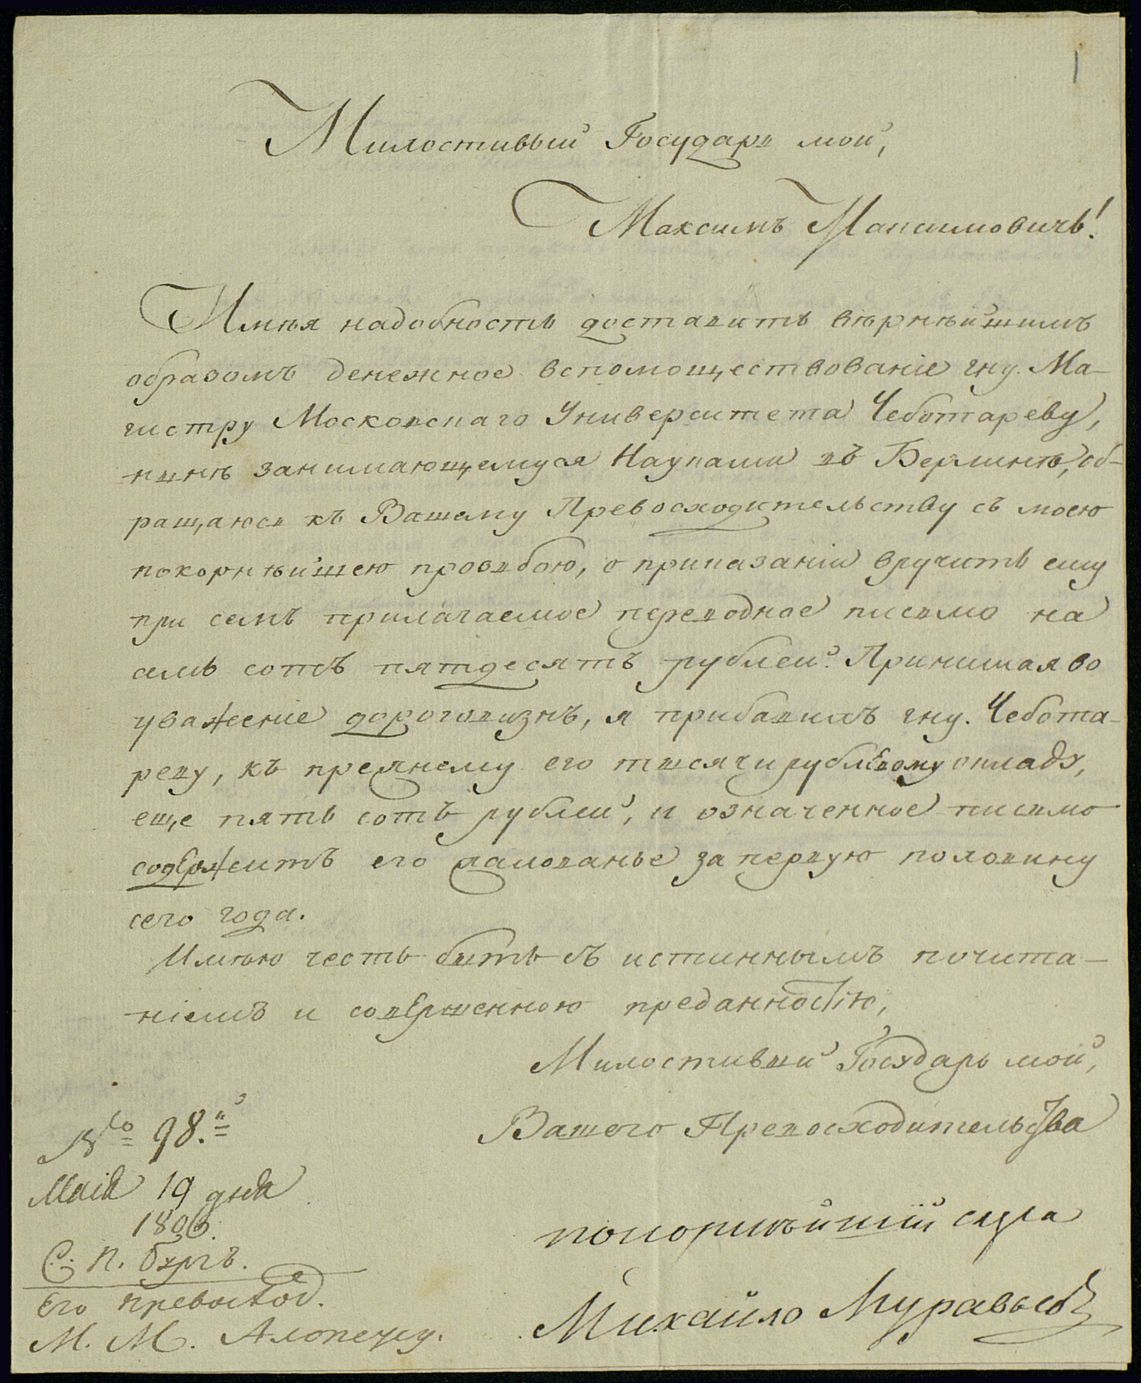 1
Милостивый Государь мой,
Максимъ Максимовичь!
Имѣя надобность доставить вѣрнѣйшимъ
образомъ денежное вспомоществованіе гну. Ма-
гистру Московскаго Университета Чеботареву,
нынѣ занимающемуся Науками въ Берлинѣ, об-
ращаюсь къ Вашему Превосходительству съ моею
покорнѣйшею прозьбою, о приказаніи вручить ему
при семъ прилагаемое переводное письмо на
семь сотъ пятдесятъ рублей. Принимая во
уваженіе дороговизнъ, я прибавилъ гну. Чебота-
реву, къ прежнему его тысячирублевому окладу,
еще пять сотъ рублей, и означенное письмо
содержитъ его жалованье за первую половину
сего года.
Имѣю честь быть съ истиннымъ почита-
ніемъ и совершенною преданностію,
Милостивый Государь мой,
Вашего Превосходительства
покорнѣйшій слуга
Михайло Муравьевъ
№ 98.й
Маія 19 дня
1806.
С. П. бургъ.
Его превосход.
М. М. Алопеусу.